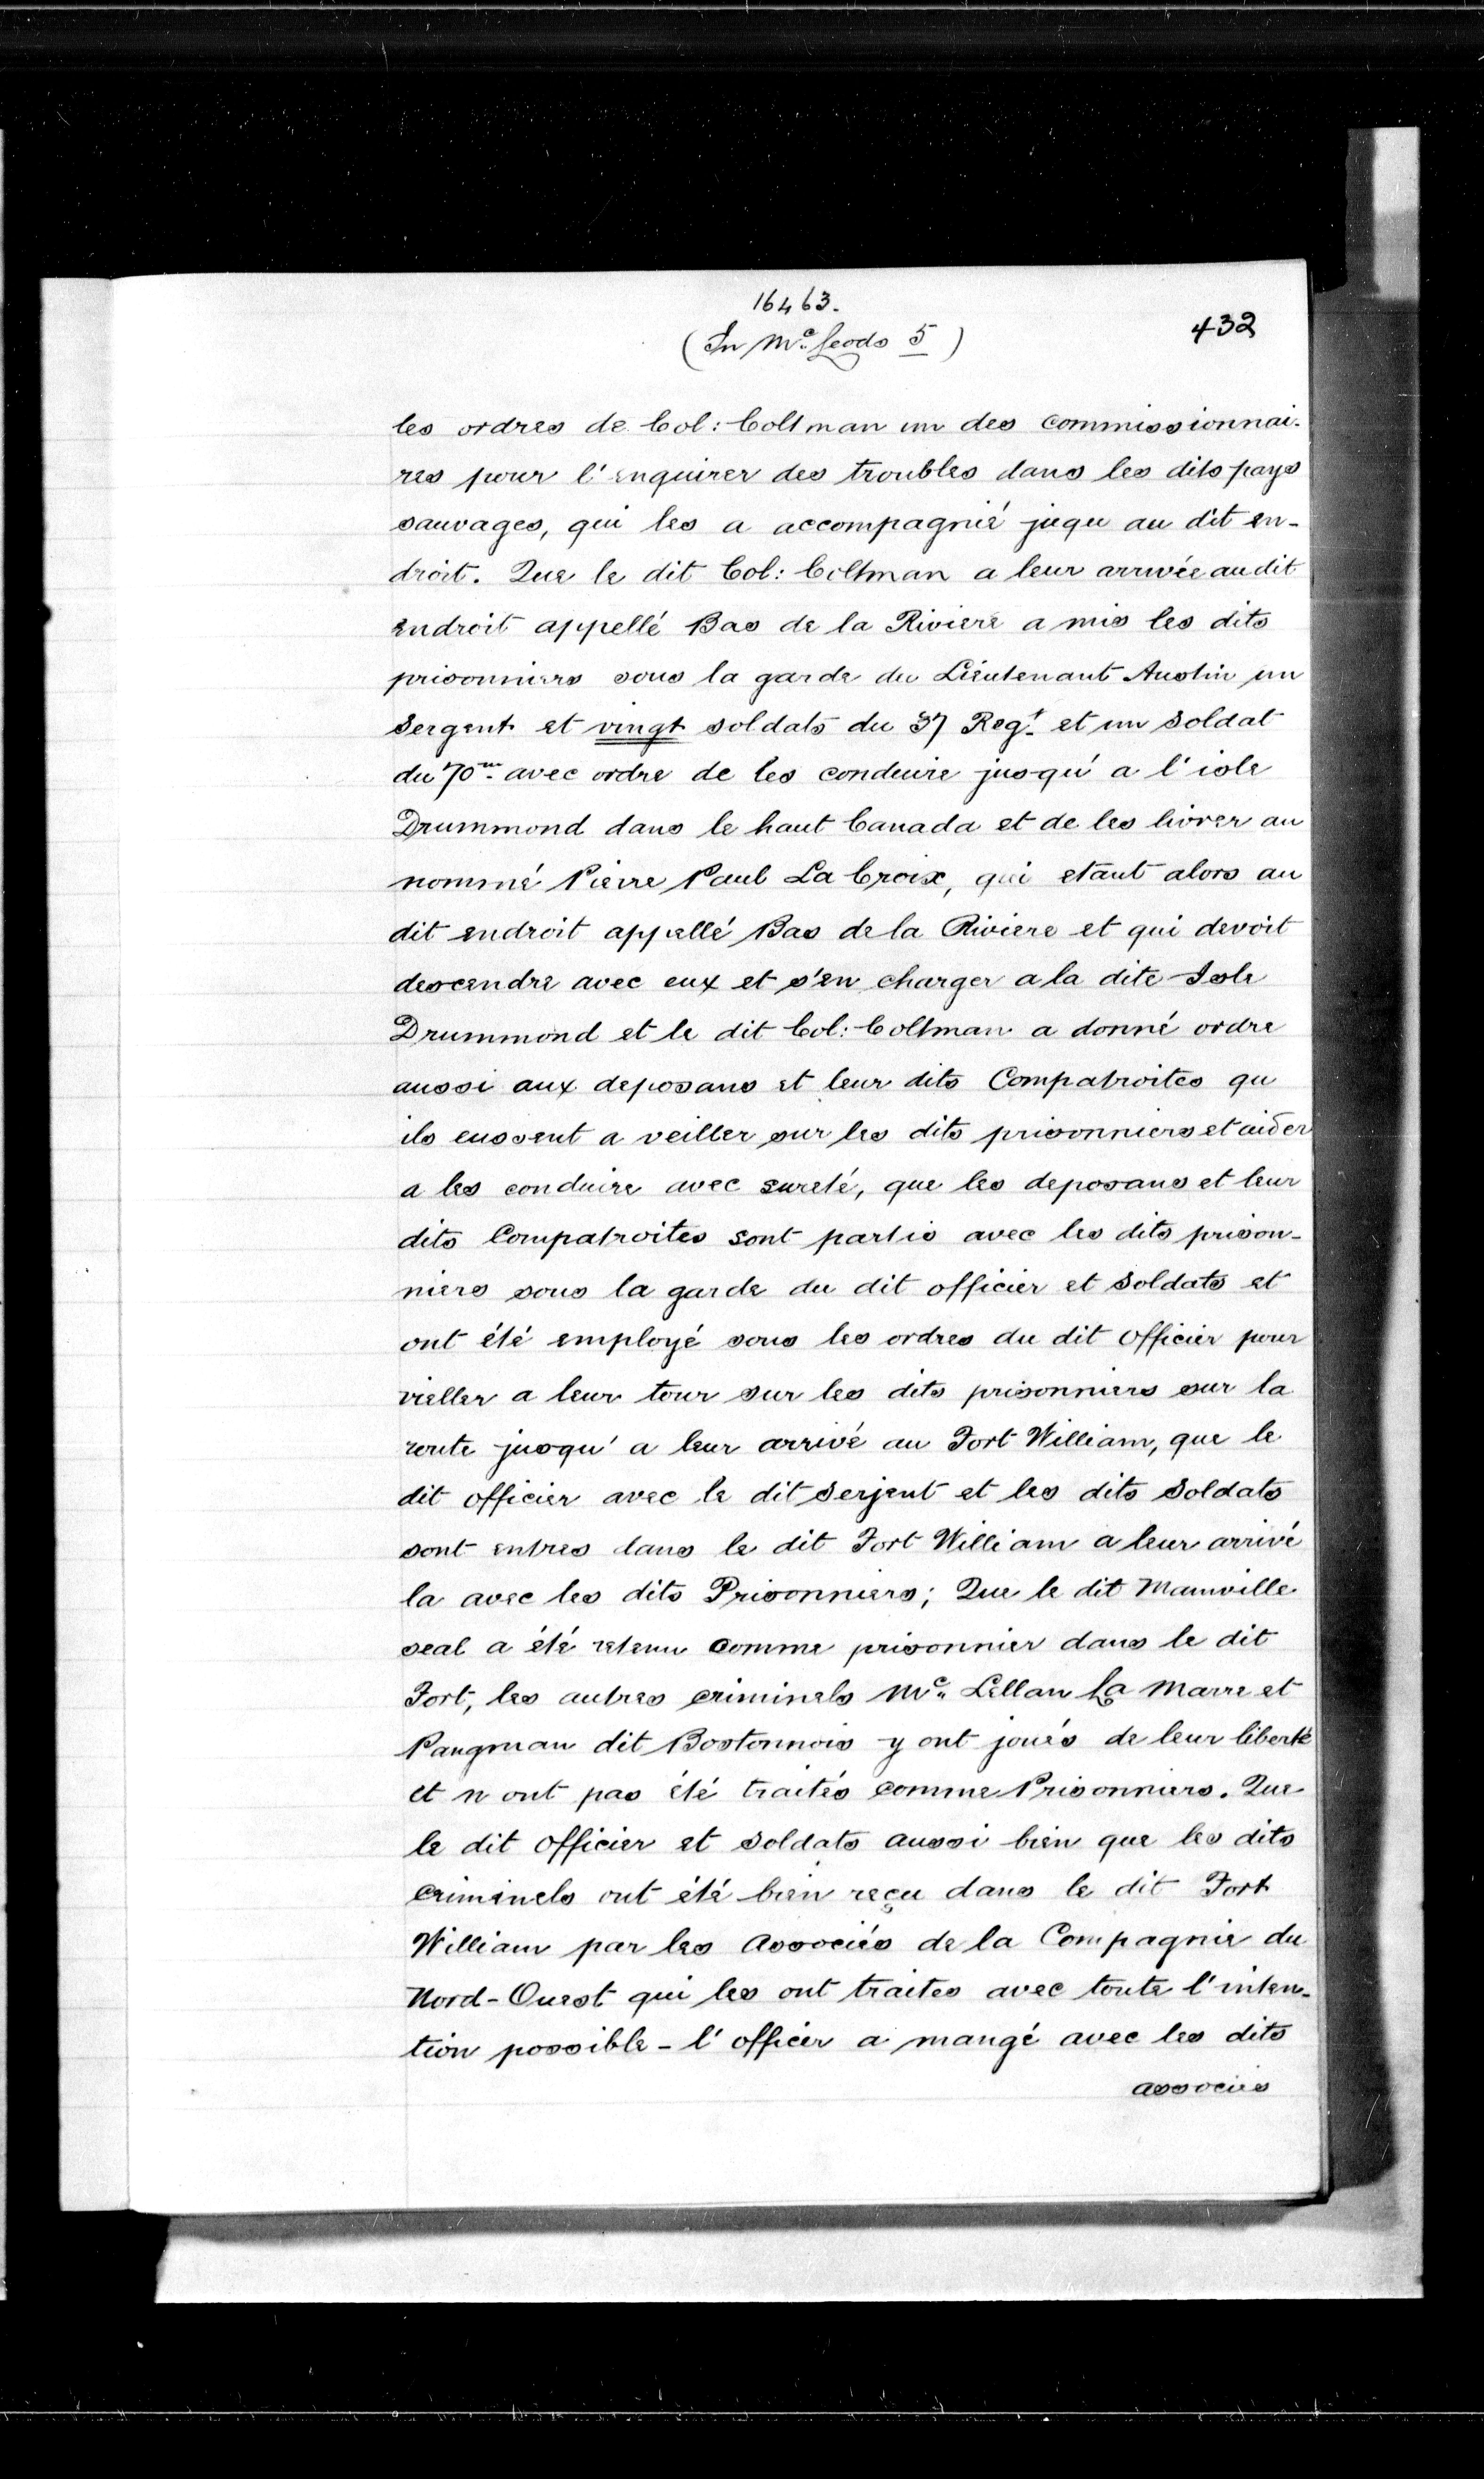 16463.
432
(In Mc. Leods 5)
les ordres de Col: Coltman un des commissionnai-
res pour l'enquirer des troubles dans les dits pays
sauvages, qui les a accompagnié juqu au dit en-
droit. Que le dit Col: Coltman a leur arrivée au dit
endroit appellé Bas de la Riviere a mis les dits
prisonniers sous la garde du Lieutenant Austin un
Sergent et vingt soldats du 37 Regt. et un soldat
du 70me. avec ordre de les conduire jusqu'a l'isle
Drummond dans le haut Canada et de les livrer au
nommé Pierre Paul La Croix, qui etant alors au
dit endroit appellé Bas de la Riviere et qui devoit
descendre avec eux et s'en charger a la dite Isle
Drummond et le dit Col: Coltman a donné ordre
aussi aux deposans et leur dits Compatroites qu
ils eussent a veiller sur les dits prisonniers et aider
a les conduire avec sureté, que les deposans et leur
dits Compatroites sont partis avec les dits prison-
niers sous la garde du dit officier et soldats et
ont été employé sous les ordres du dit officier pour
vieller a leur tour sur les dits prisonniers sur la
route jusqu'a leur arrivé au Fort William, que le
dit officier avec le dit Serjent et les dits soldats
sont entres dans le dit Fort William a leur arrivé
la avec les dits Prisonniers; Que le dit Mainville
seal a été retenu comme prisonnier dans le dit
Fort, les autres criminels Mc. Lellan La Marre et
Pangman dit Bostonnois y ont joués de leur liberté
et n ont pas été traités comme Prisonniers. Que
le dit officier et soldats aussi bien que les dits
criminels ont été bien reçu dans le dit Fort
William par les Associés de la Compagnie du
Nord-Ouest qui les ont traites avec toute l'inten-
tion possible - l'officier a mangé avec les dits
associés